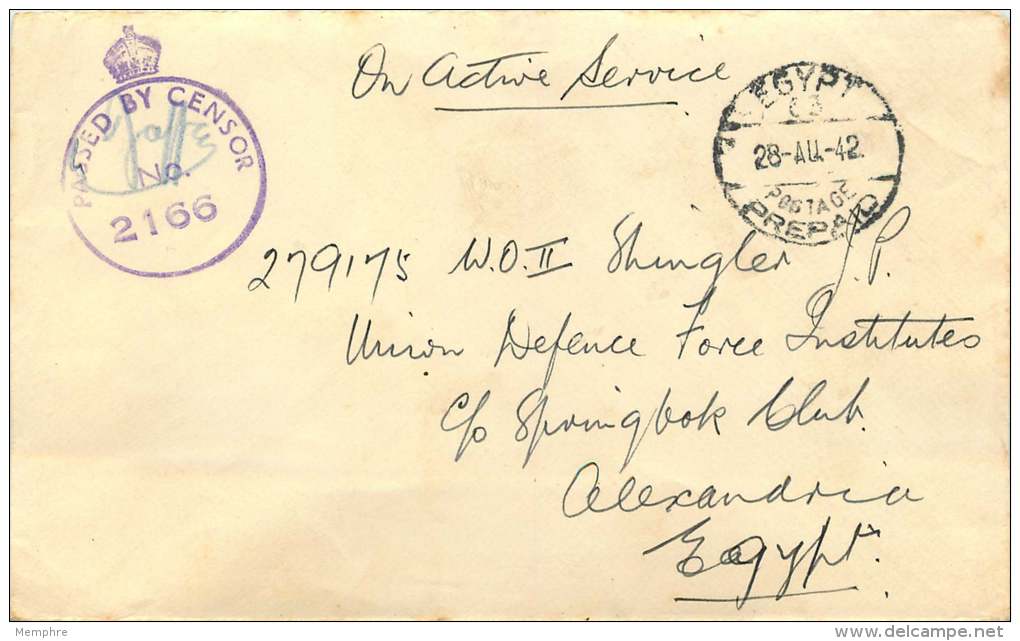 On Active Service
PASSED BY CENSOR
No.
2166
EGYPT
28-AU-42
POSTAGE
PREPAID
279175 W.O.II Shingler J.P.
Union Defence Force Institutes
c/o Springbok Club.
Alexandria
Egypt.
Memphre
delcampe.net